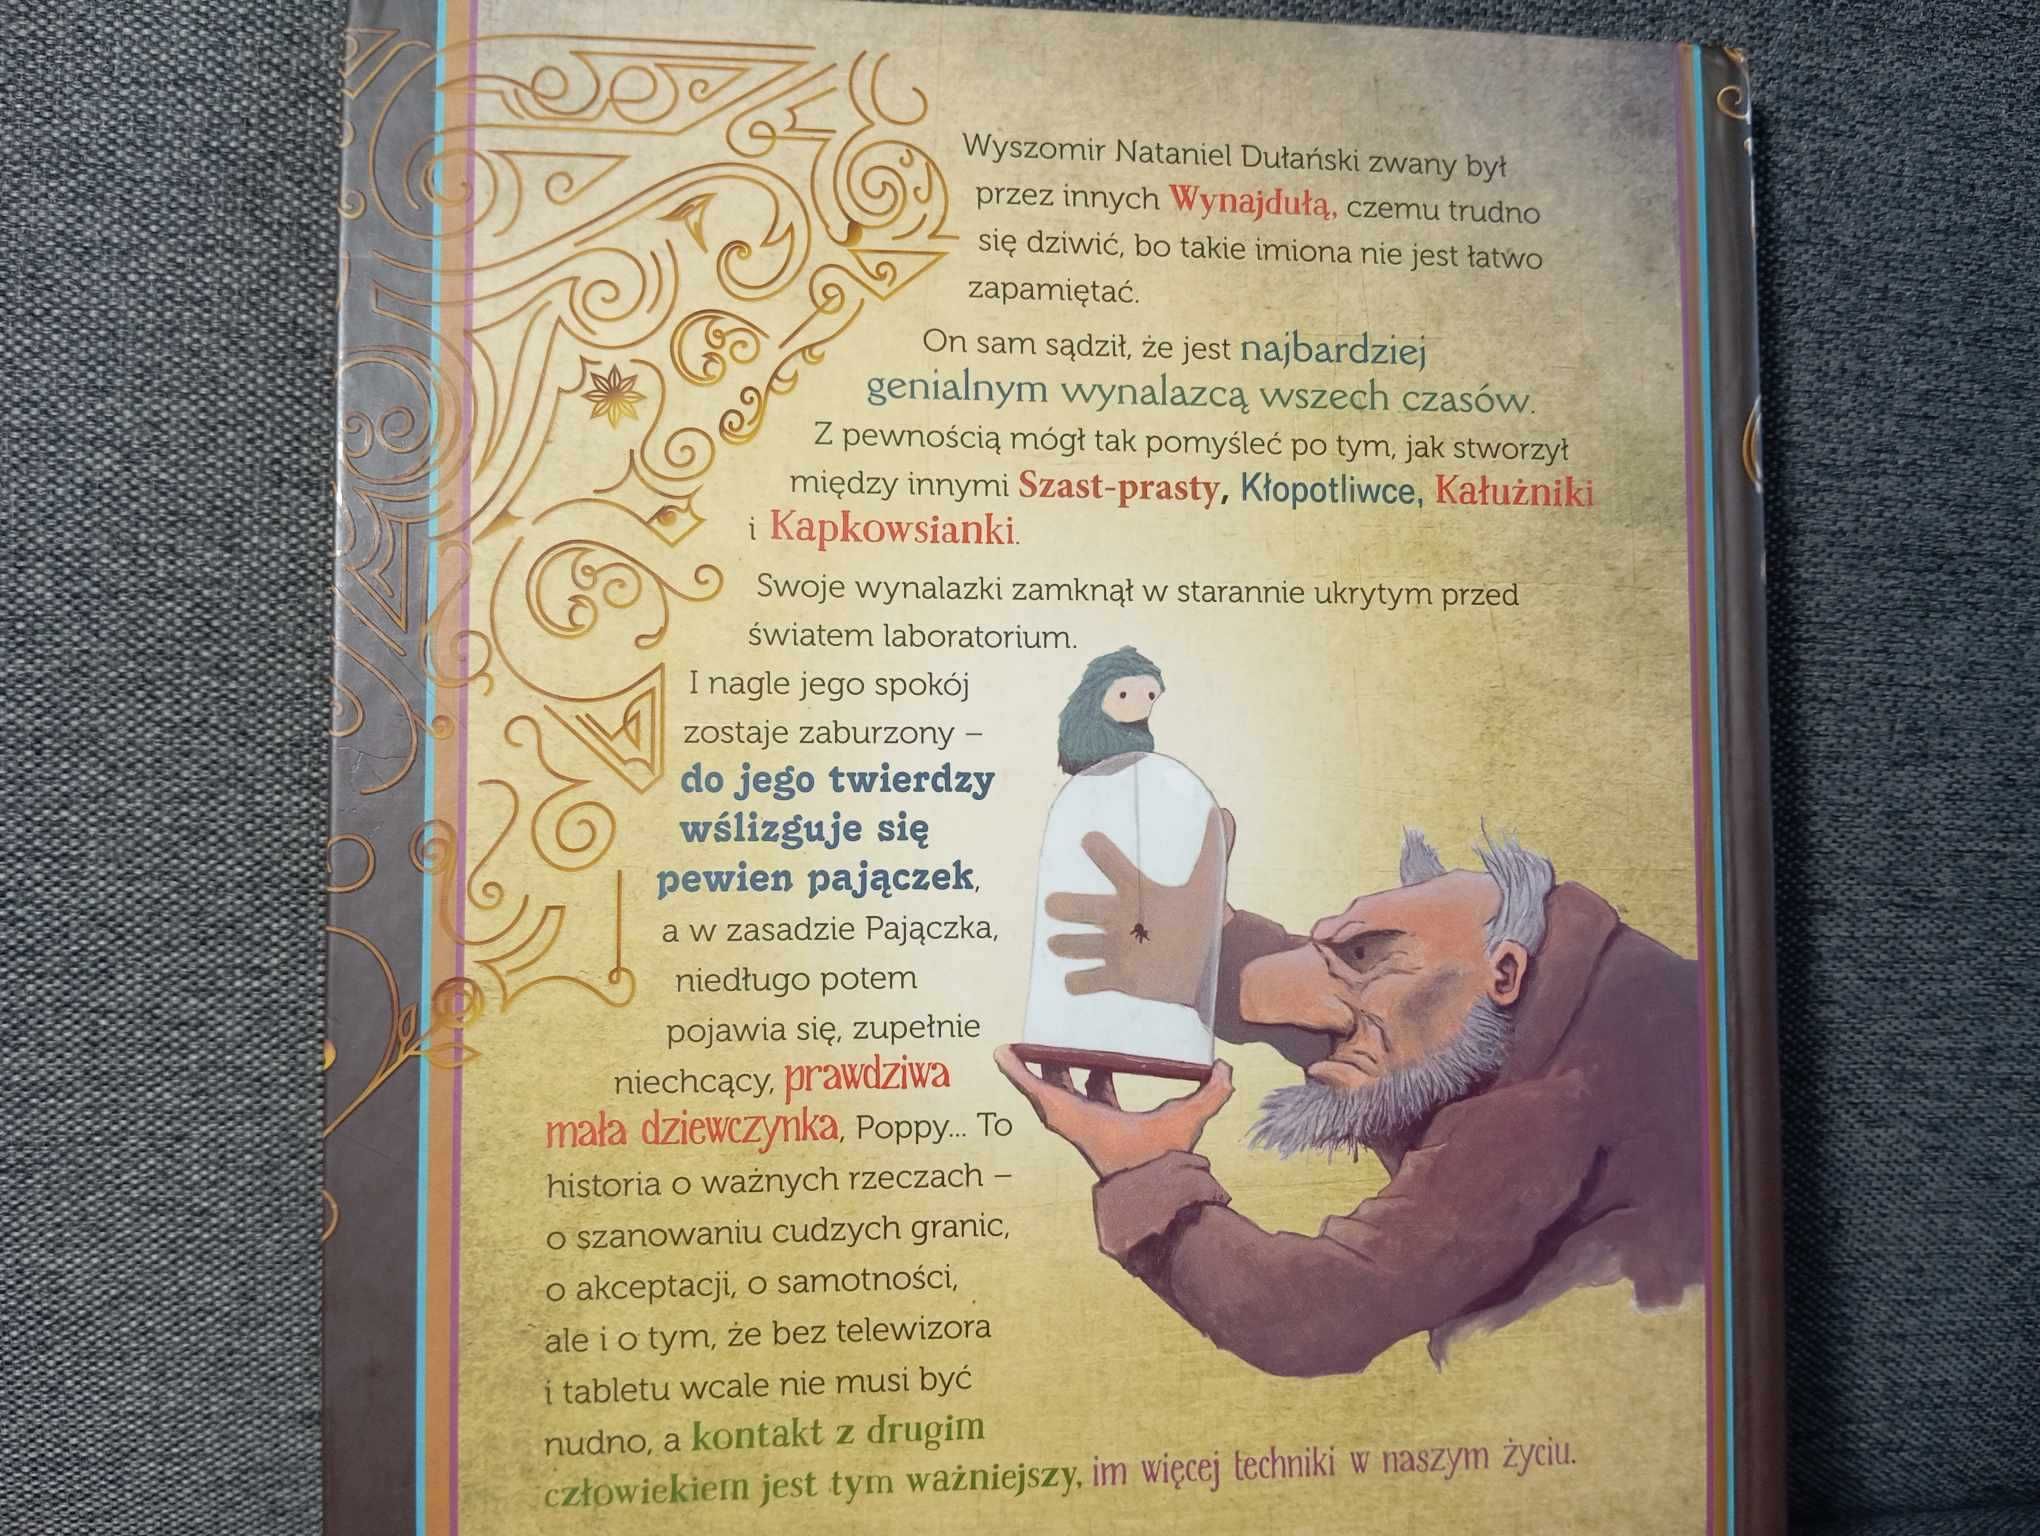 Wyszomir Nataniel Dułański zwany był
przez innych Wynajdułą, czemu trudno
się dziwić, bo takie imiona nie jest łatwo
zapamiętać.
On sam sądził, że jest najbardziej
genialnym wynalazcą wszech czasów.
Z pewnością mógł tak pomyśleć po tym, jak stworzył
między innymi Szast-prasty, Kłopotliwce, Kałużniki
i Kapkowsianki.
Swoje wynalazki zamknął w starannie ukrytym przed
światem laboratorium.
I nagle jego spokój
zostaje zaburzony –
do jego twierdzy
wślizguje się
pewien pajączek,
a w zasadzie Pajączka,
niedługo potem
pojawia się, zupełnie
niechcący, prawdziwa
mała dziewczynka, Poppy... To
historia o ważnych rzeczach –
o szanowaniu cudzych granic,
o akceptacji, o samotności,
ale i o tym, że bez telewizora
i tabletu wcale nie musi być
nudno, a kontakt z drugim
człowiekiem jest tym ważniejszy, im więcej techniki w naszym życiu.